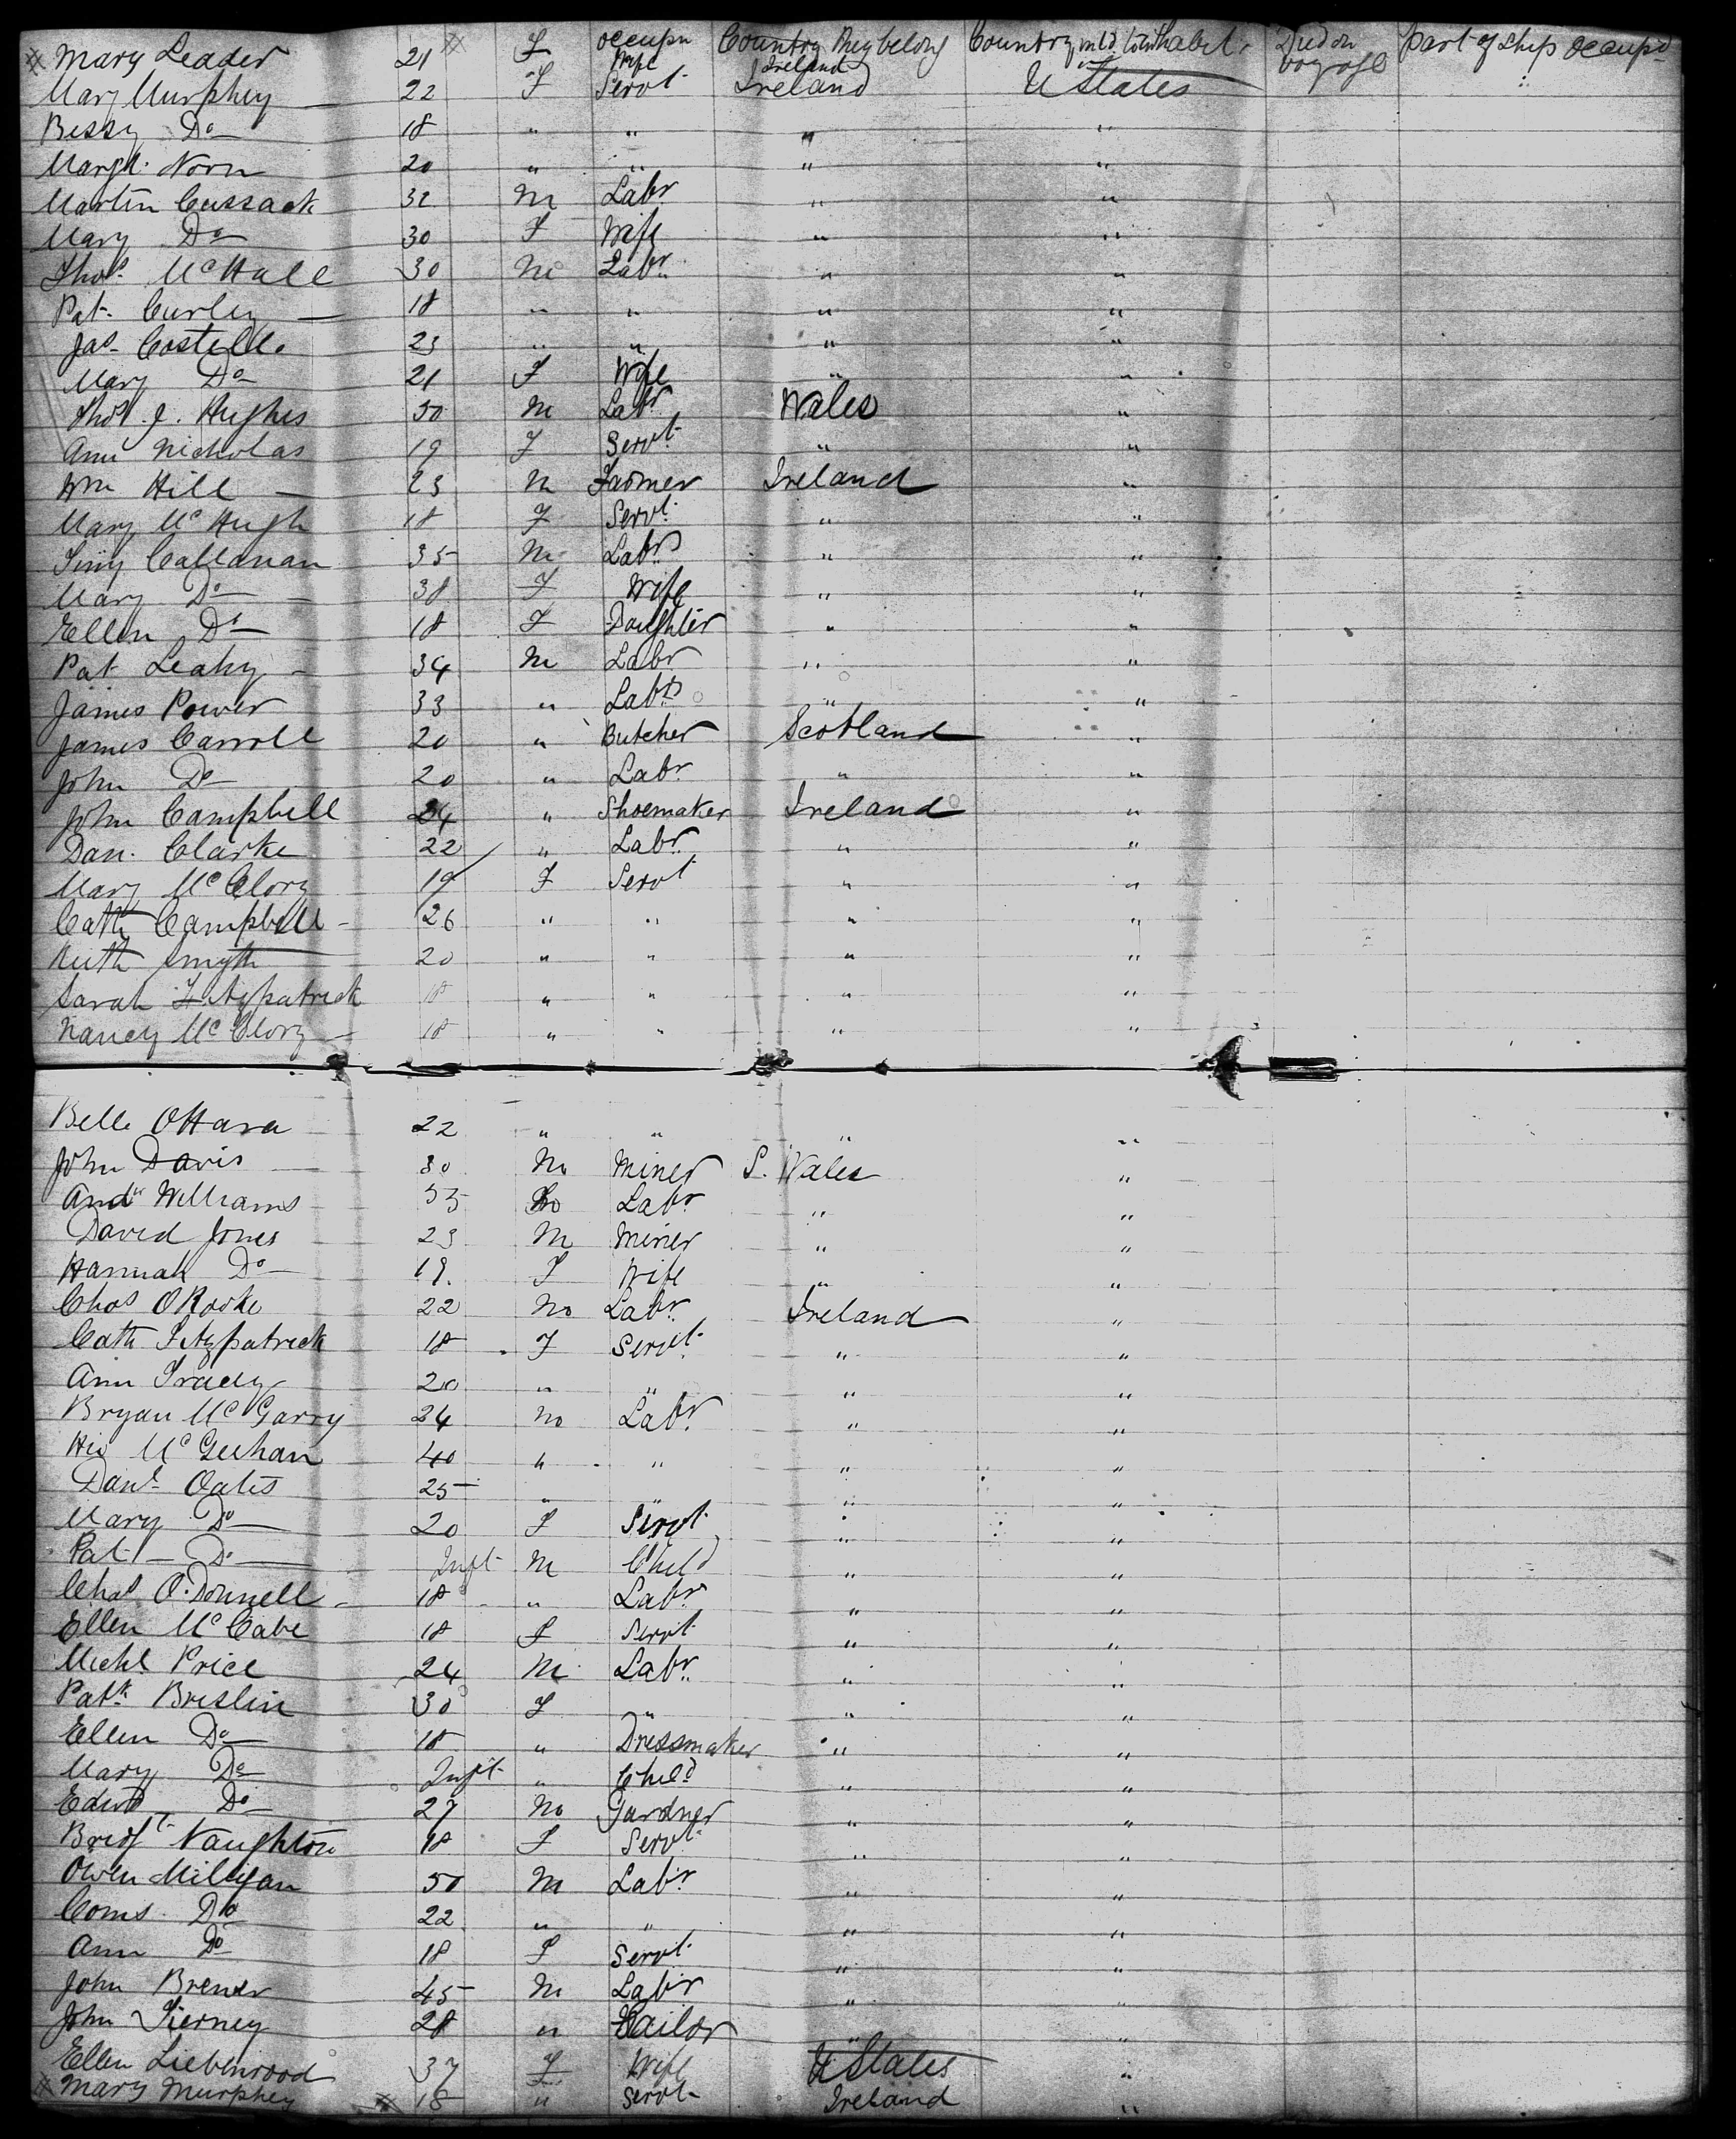 Mary Leader 21 F occupn Wife Country they belong Ireland Country intd to inhabit Died on voyage Part of ship occupd
Mary Murphey — 22 F Servt Ireland U States
Bessy Do 18 " " " "
Margt. Norn 20 " " " "
Martin Cussack 32 M Labr " "
Mary Do 30 F Wife " "
Thos. McHale 30 M Labr " "
Pat. Curley — 18 " " " "
Jas. Costello 23 " " " "
Mary Do 21 F Wife " "
Thos. J. Hughes 50 M Labr Wales "
Ann Nicholas 19 F Servt " "
Wm Hill — 23 M Farmer Ireland "
Mary McHugh 18 F Servt. " "
Timy Callanan 35 M Labr " "
Mary Do — 38 F Wife " "
Ellen Do 18 F Daughter " "
Pat Leahy — 34 M Labr " "
James Power 33 " Labr " "
James Carroll 20 " Butcher Scotland "
John Do 20 " Labr " "
John Campbell 24 " Shoemaker Ireland "
Dan. Clarke 22 " Labr " "
Mary McClory 19 F Servt " "
Cath Campbell — 26 " " " "
Ruth Smyth 20 " " " "
Sarah Fitzpatrick 18 " " " "
Nancy McClory — 18 " " " "
Bella OHara 22 " " " "
John Davis 30 M Miner S. Wales "
Andw Williams 55 M Labr " "
David Jones 23 M Miner " "
Hannah Do 19 F Wife " "
Chas ORorke 22 M Labr Ireland "
Cath Fitzpatrick 18 F Servt " "
Ann Tracey 20 " " " "
Bryan McGarry 24 M Labr " "
McGeehan 40 " " " "
Danl Oates 25 " " "
Mary Do 20 F Servt " "
Pat — Do Inft M Child " "
Chas O.Donnell 18 " Labr " "
Ellen McCabe 18 F Servt " "
Michl Price 24 M Labr " "
Patk Breslin 30 F " " "
Ellen Do 18 " Dressmaker " "
Mary Do Inft " Child " "
Edwd Do 27 M Gardner " "
Bridgt Naughton 18 F Servt " "
Owen Milligan 50 M Labr " "
Corns Do 22 " " " "
Ann Do 18 F Servt " "
John Brener 45 M Labr " "
John Tierney 28 " Tailor " "
Ellen Liebenrood 37 F Wife U States "
Mary Murphey 18 " Servt Ireland "